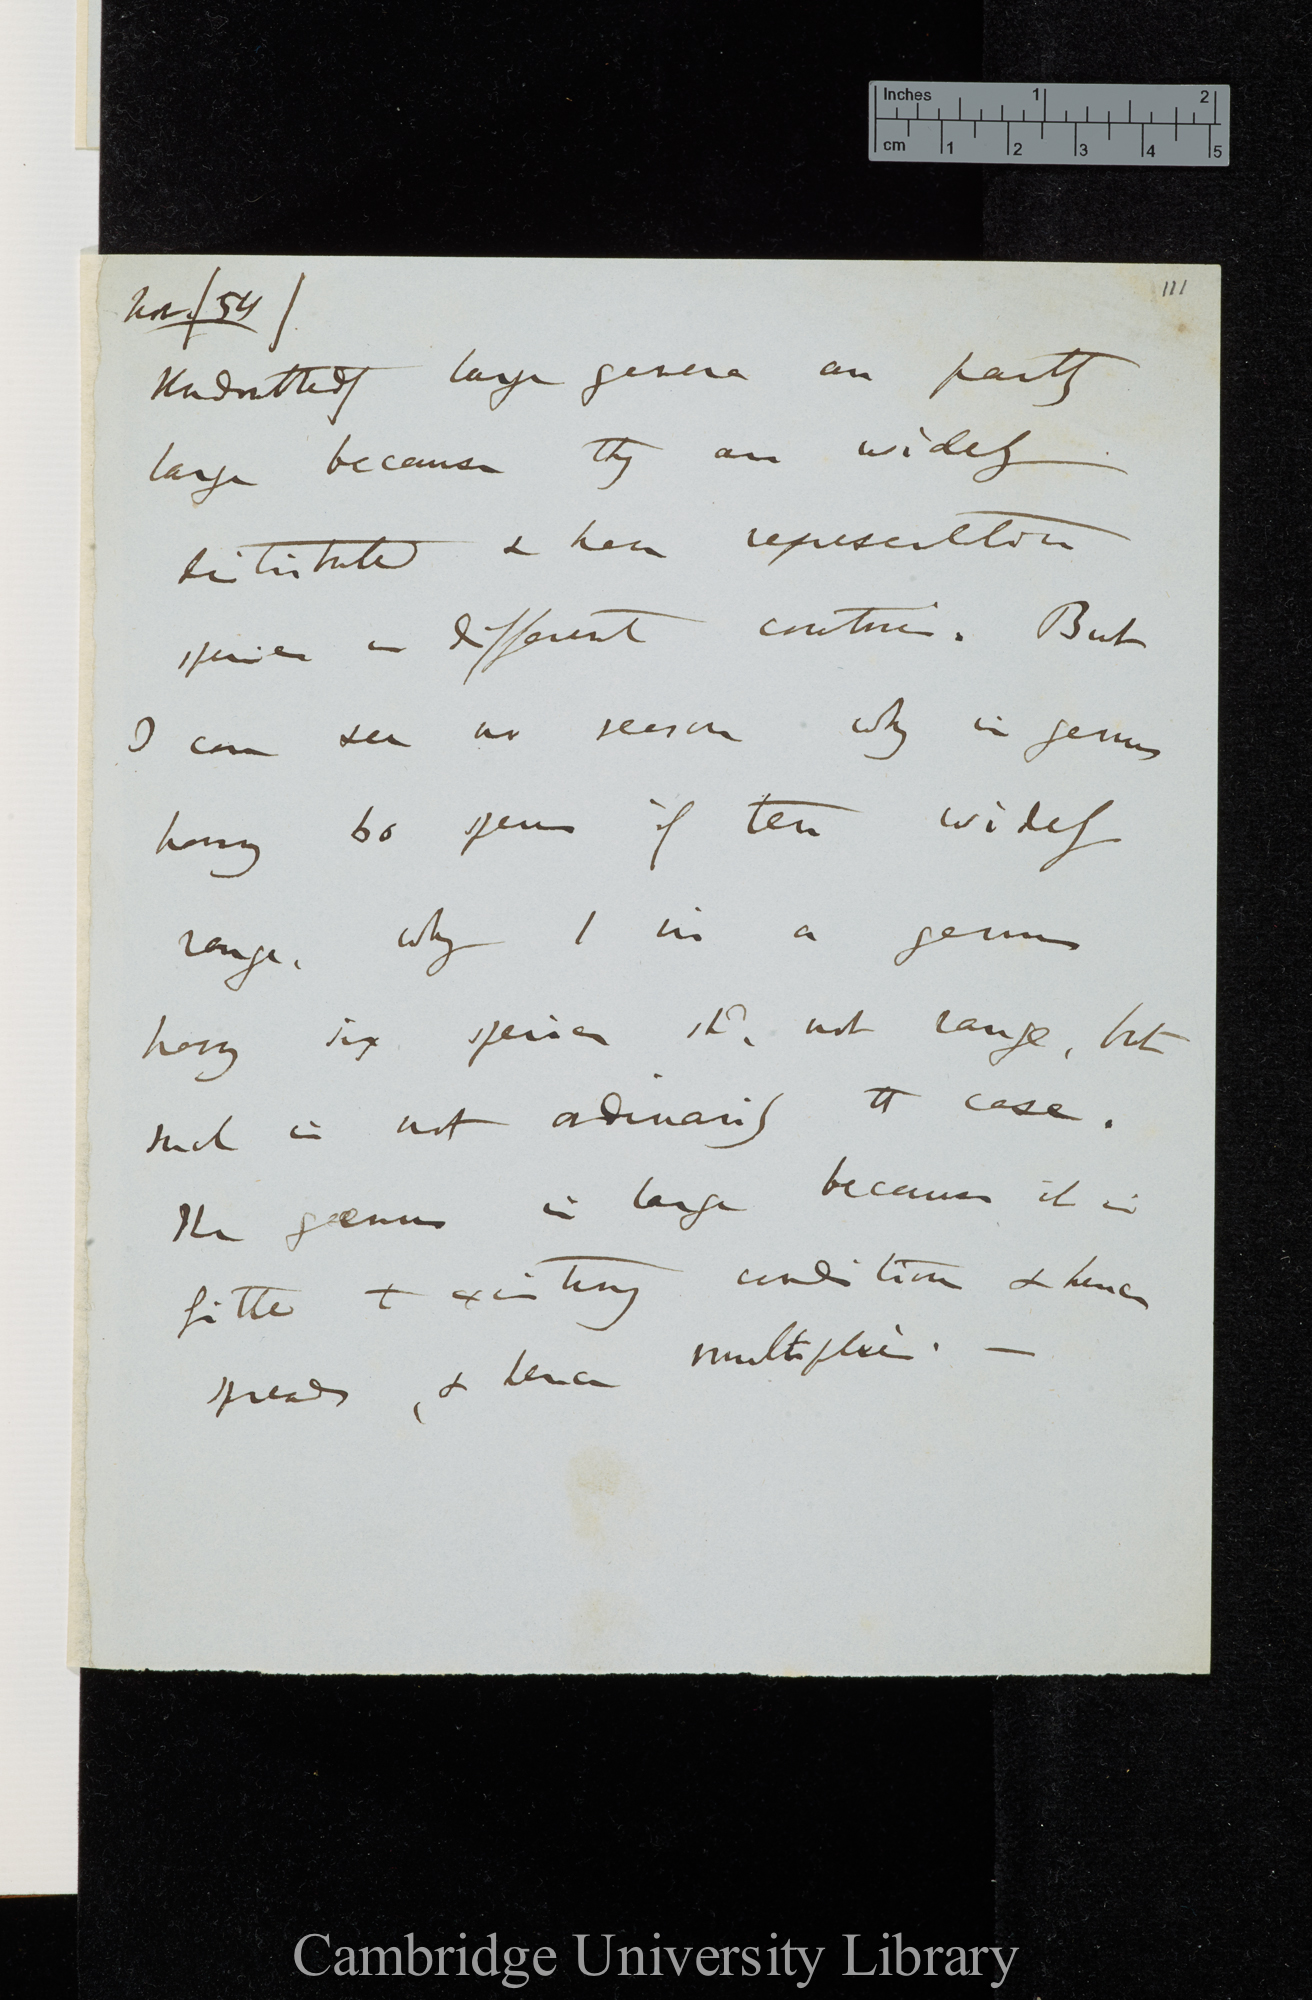 Inches 1 2
cm 1 2 3 4 5
111
Nov. /54/
Undoubtedly large genera are partly
large because they are widely
distributed & have representative
species in different countries. But
I can see no reason why in genus
having 60 species if ten widely
range, why 1 in a genus
having six species shd. not range, but
such is not ordinarily the case.
The genus is large because it is
fitted to existing conditions & hence
spreads, & hence multiplies. —
Cambridge University Library